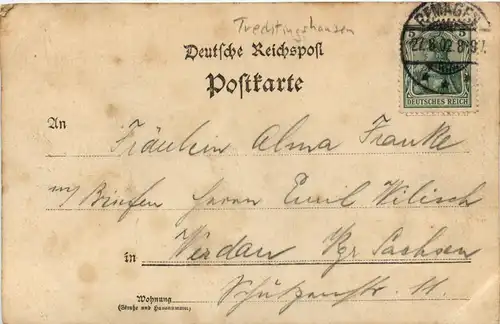 Trechtingshausen
Deutsche Reichspost
Postkarte
REMAGEN
5 5
27.8.02. 8-9V.
DEUTSCHES REICH
An Fräulein Alma Franke
Herrn Emil Wilisch
in Werdau Kgr. Sachsen
Schützenstr. 11.
Wohnung
(Straße und Hausnummer)